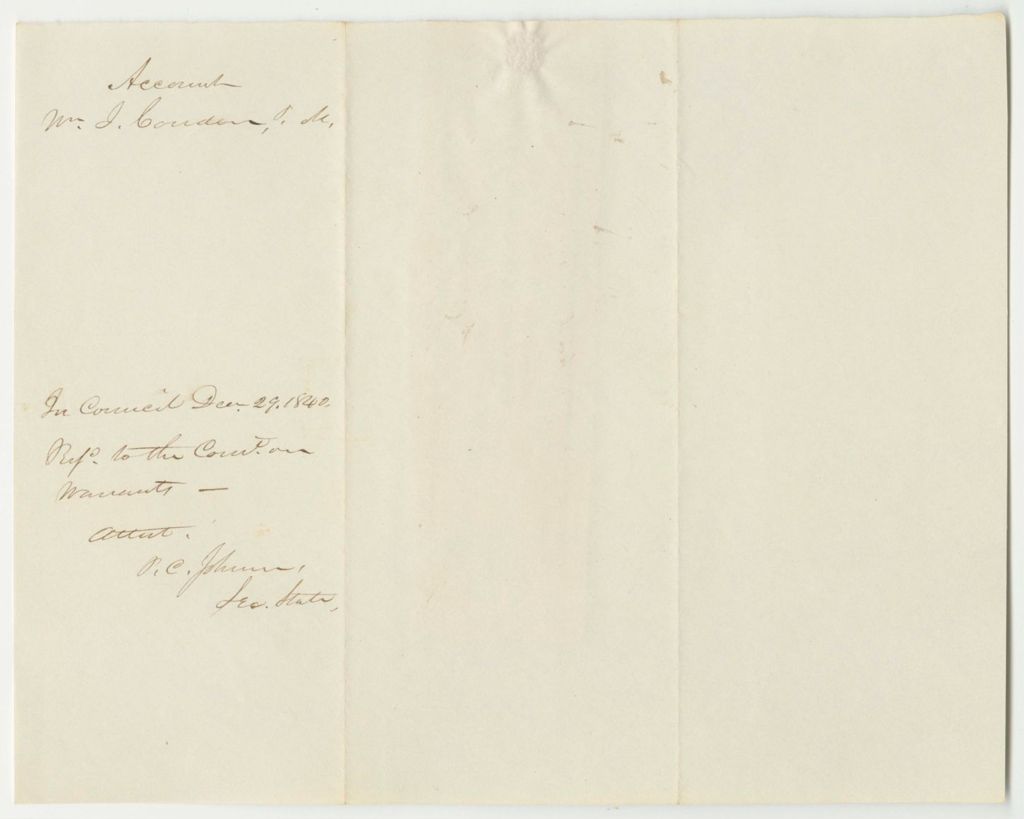 Account
Wm. J. Condon, P. M.
In Council Decr. 29. 1840.
Refd. to the Comtt. on
Warrants —
Attest.
P. C. Johnson,
Sec. State,